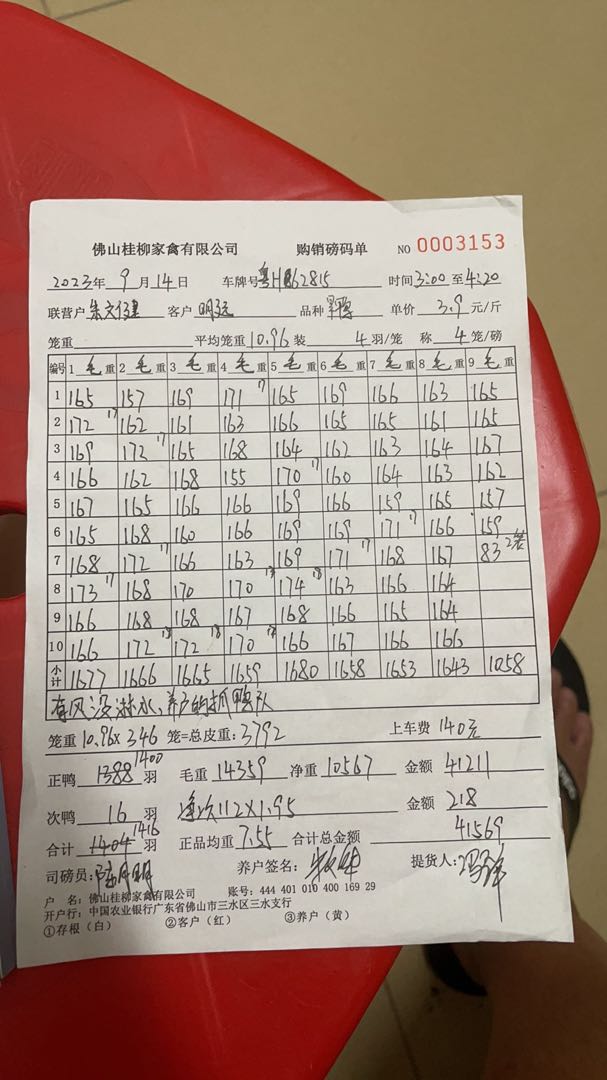 佛山桂柳家禽有限公司 购销磅码单 NO 0003153
2023年 9月14日 车牌号 粤H 62815 时间 3:00 至 4:20
联营户 客户 明远 品种 单价 3.9 元/斤
笼重 平均笼重 10.96 装 4 羽/笼 称 4 笼/磅
编号 1 毛重 2 毛重 3 毛重 4 毛重 5 毛重 6 毛重 7 毛重 8 毛重 9 毛重
1 165 157 169 171 17 165 169 166 163 165
2 172 17 162 161 163 166 165 165 161 165
3 169 172 17 165 168 164 162 163 164 167
4 166 162 168 155 170 17 160 164 163 162
5 167 165 166 166 169 166 159 165 157
6 165 168 160 166 169 169 171 17 166 159
7 168 172 17 166 163 169 171 17 168 167 83 2笼
8 173 17 168 170 170 174 18 163 166 164
9 166 168 168 167 168 166 165 164
10 166 172 18 172 18 170 166 167 166 166
小计 1677 1666 1665 1659 1680 1658 1653 1643 1058
有风没淋水、养户的抓鸭队
笼重 10.96 x 346 笼=总皮重: 3792 上车费 140元
正鸭 1388 1400 羽 毛重 14359 净重 10567 金额 41211
次鸭 16 羽 112 x 1.95 金额 218
合计 1404 1416 羽 正品均重 7.55 合计总金额 41569
司磅员: 养户签名: 提货人:
户 名: 佛山桂柳家禽有限公司 账号: 444 401 010 400 169 29
开户行: 中国农业银行广东省佛山市三水区三水支行
①存根（白） ②客户（红） ③养户（黄）